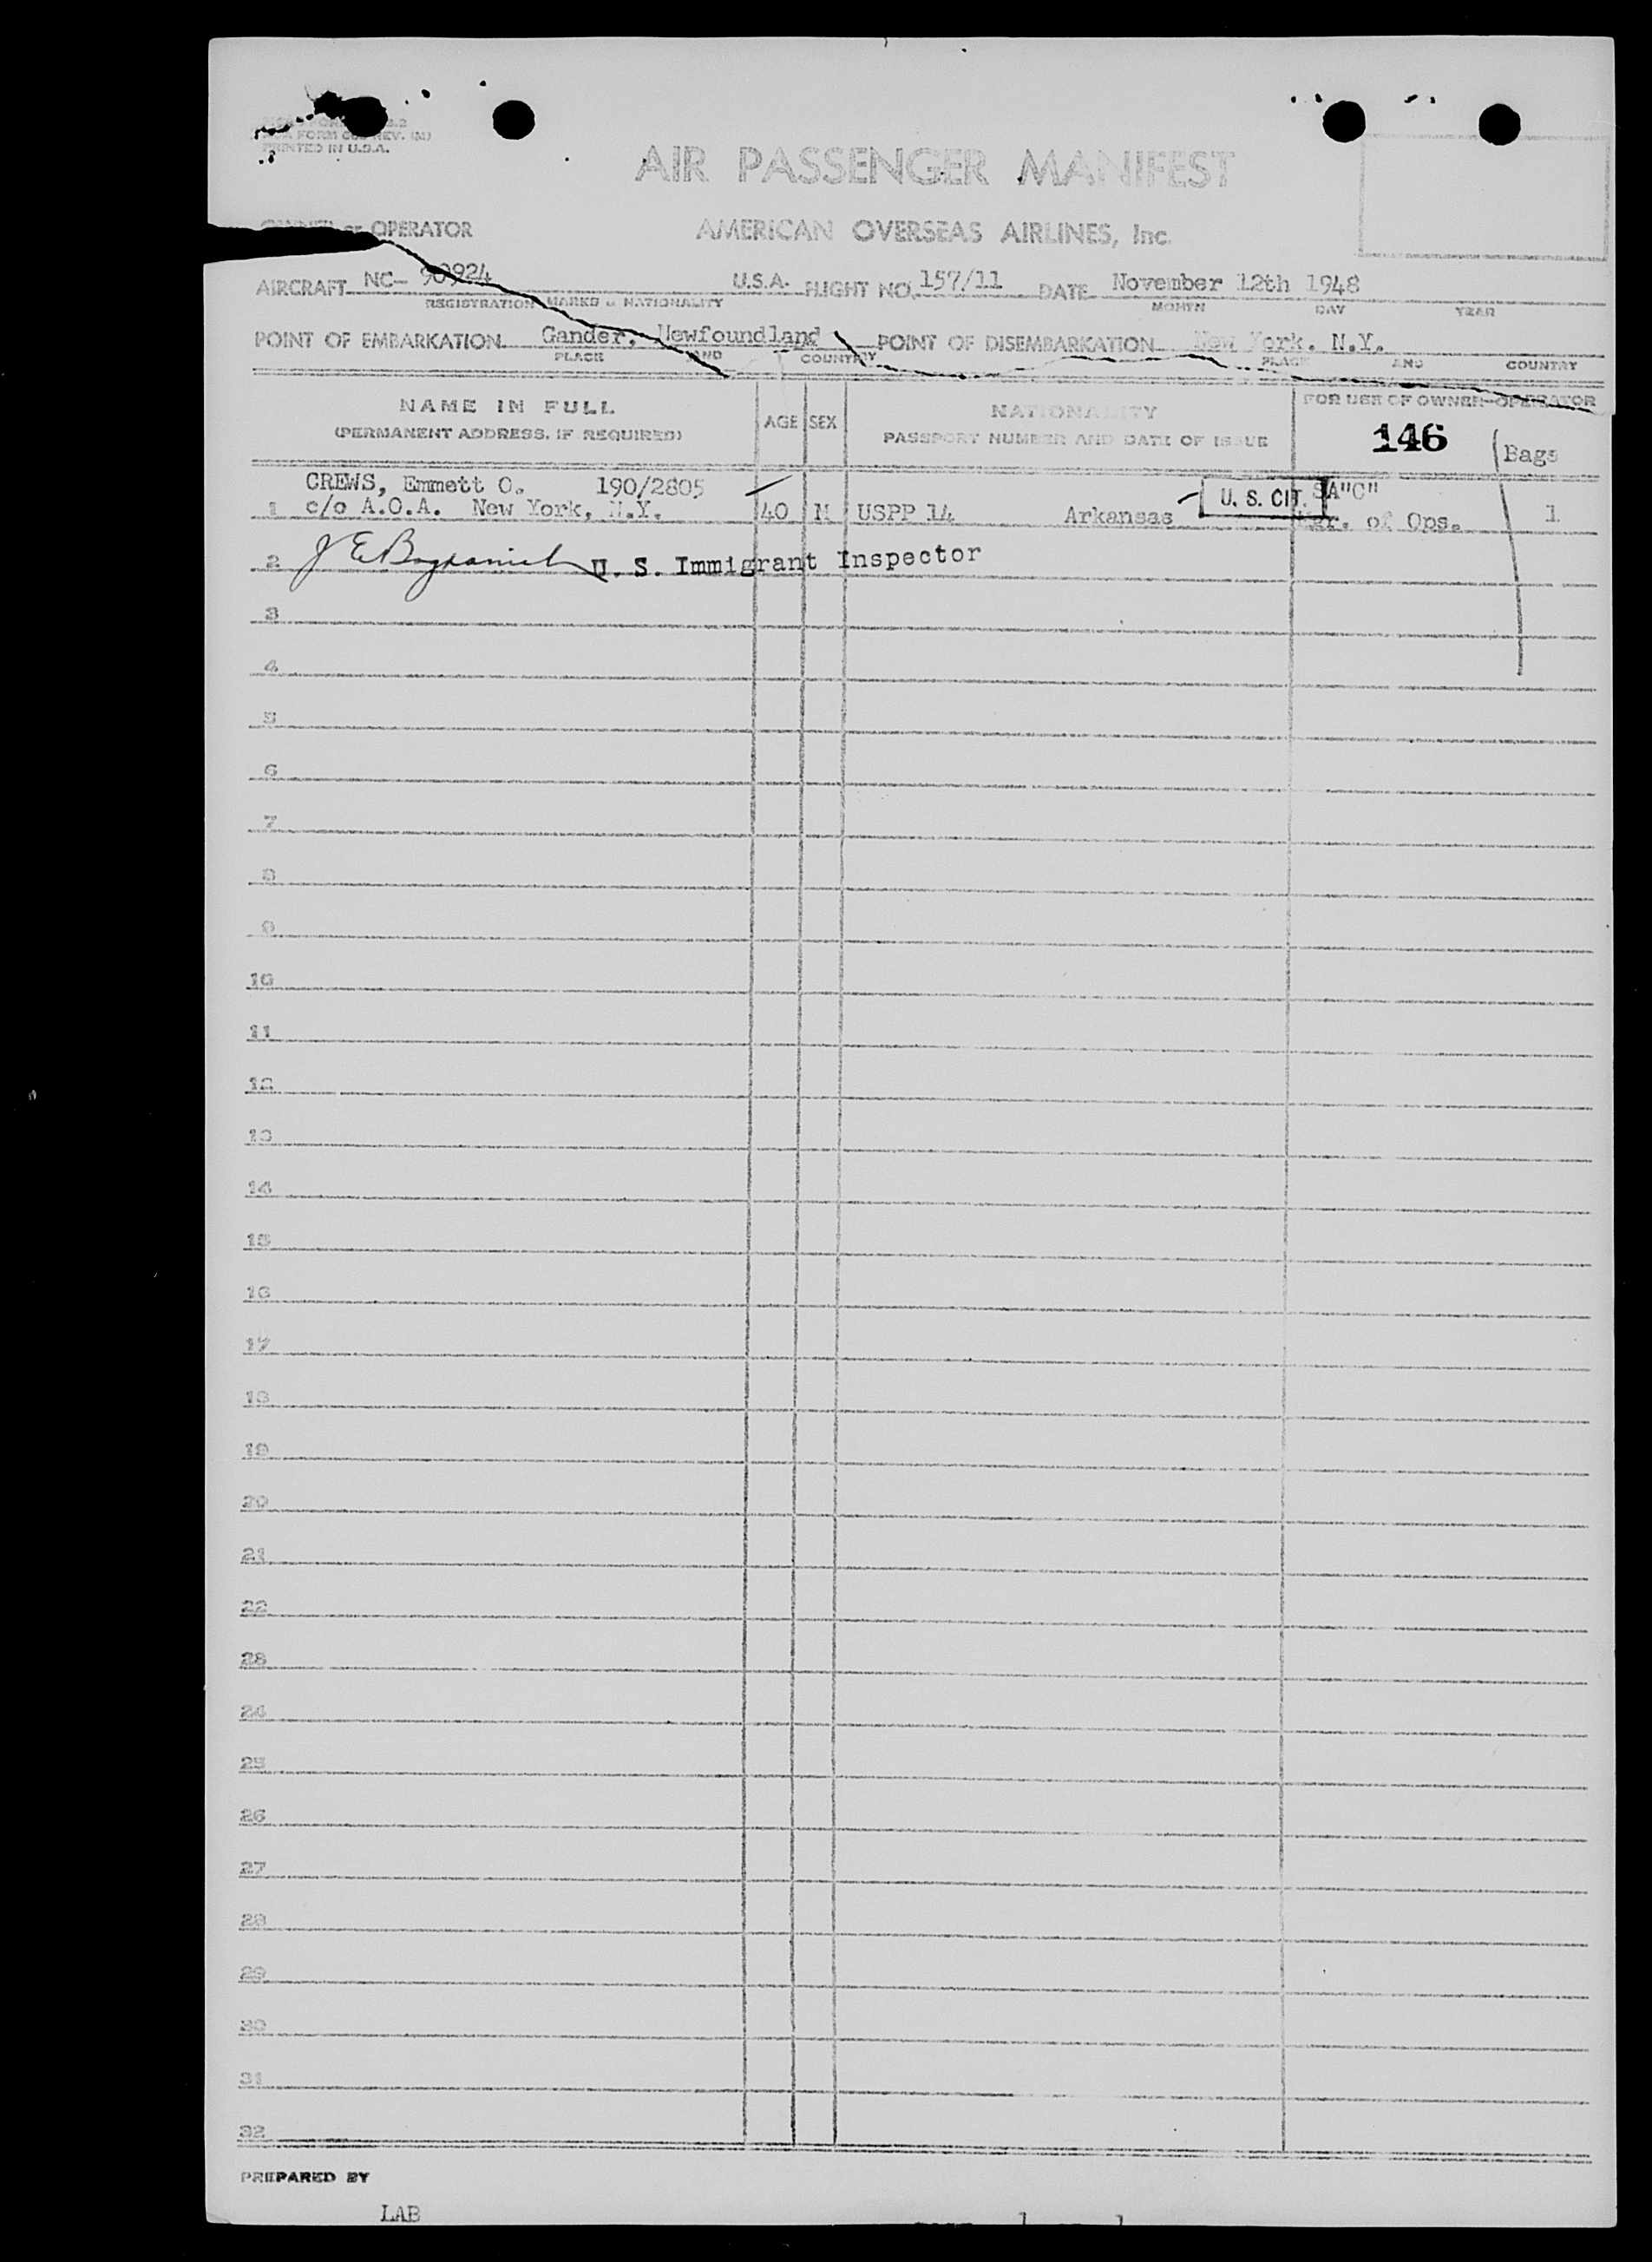 PRINTED IN U.S.A.
AIR PASSENGER MANIFEST
OPERATOR AMERICAN OVERSEAS AIRLINES, Inc.
AIRCRAFT NC- 90924 U.S.A. FLIGHT NO. 157/11 DATE November 12th 1948
REGISTRATION MARKS & NATIONALITY MONTH DAY YEAR
POINT OF EMBARKATION Gander, Newfoundland POINT OF DISEMBARKATION New York, N.Y.
PLACE AND COUNTRY PLACE AND COUNTRY
NAME IN FULL AGE SEX NATIONALITY FOR USE OF OWNER-OPERATOR
(PERMANENT ADDRESS, IF REQUIRED) PASSPORT NUMBER AND DATE OF ISSUE 146 Bags
CREWS, Emmett O. 190/2805 U. S. CIT. SA"C"
1 c/o A.O.A. New York, N.Y. 40 M USPP 14 Arkansas Mgr. of Ops. 1
2 U. S. Immigrant Inspector
3
4
5
6
7
8
9
10
11
12
13
14
15
16
17
18
19
20
21
22
23
24
25
26
27
28
29
30
31
32
PREPARED BY
LAB